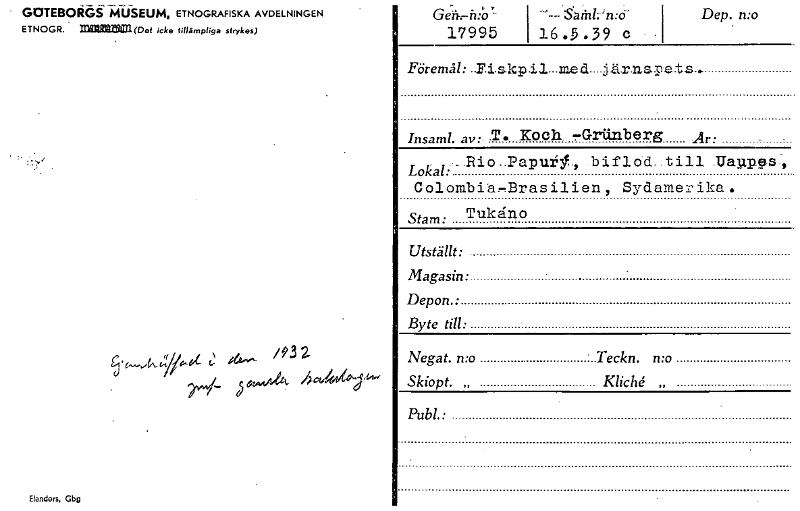 GÖTEBORGS MUSEUM, ETNOGRAFISKA AVDELNINGEN
ETNOGR. (Det icke tillämpliga strykes)
i den 1932
Elanders, Gbg
Gen. n:o Saml. n:o Dep. n:o
17995 16.5.39 c
Föremål: Fiskpil med järnspets.
Insaml. av: T. Koch -Grünberg År:
Lokal: Rio Papurý, biflod till Uaupes,
Colombia-Brasilien, Sydamerika.
Stam: Tukáno
Utställt:
Magasin:
Depon.:
Byte till:
Negat. n:o Teckn. n:o
Skiopt. „ Kliché „
Publ.: